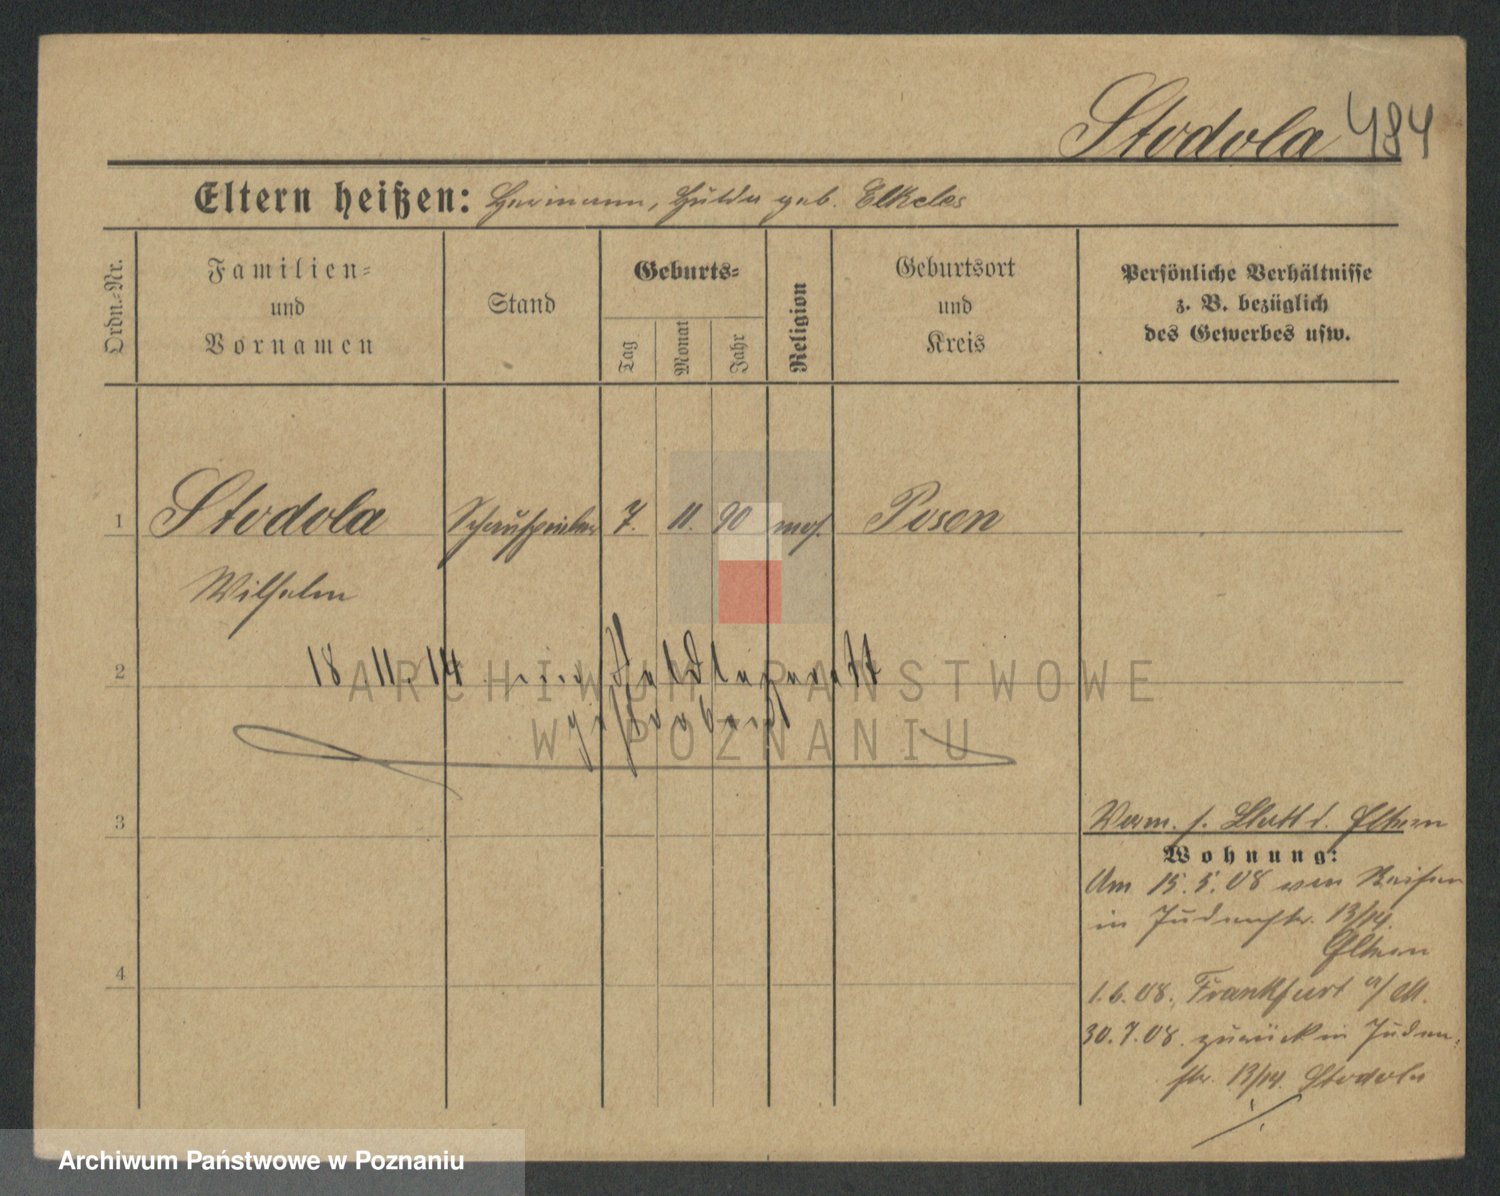 Stodola 484
Eltern heißen: Hermann, Hulda geb. Elkeles
Ordn.-Nr.
Familien-
und
Vornamen
Stand
Geburts-
Tag
Monat
Jahr
Religion
Geburtsort
und
Kreis
Persönliche Verhältnisse
z. B. bezüglich
des Gewerbes usw.
1 Stodola Schauspieler 7. 11. 90 mos. Posen
Wilhelm
2 18 11. 14 im Feldlazarett
gestorben
ARCHIWUM PAŃSTWOWE
W POZNANIU
3
Verm. s. Blatt d. Eltern
Wohnung:
Am 15. 5. 08 von Reisen
in Judenstr. 13/14.
Eltern
4
1. 6. 08. Frankfurt a/M.
30. 7. 08. zurück in Juden-
str. 13/14. Stodola
Archiwum Państwowe w Poznaniu